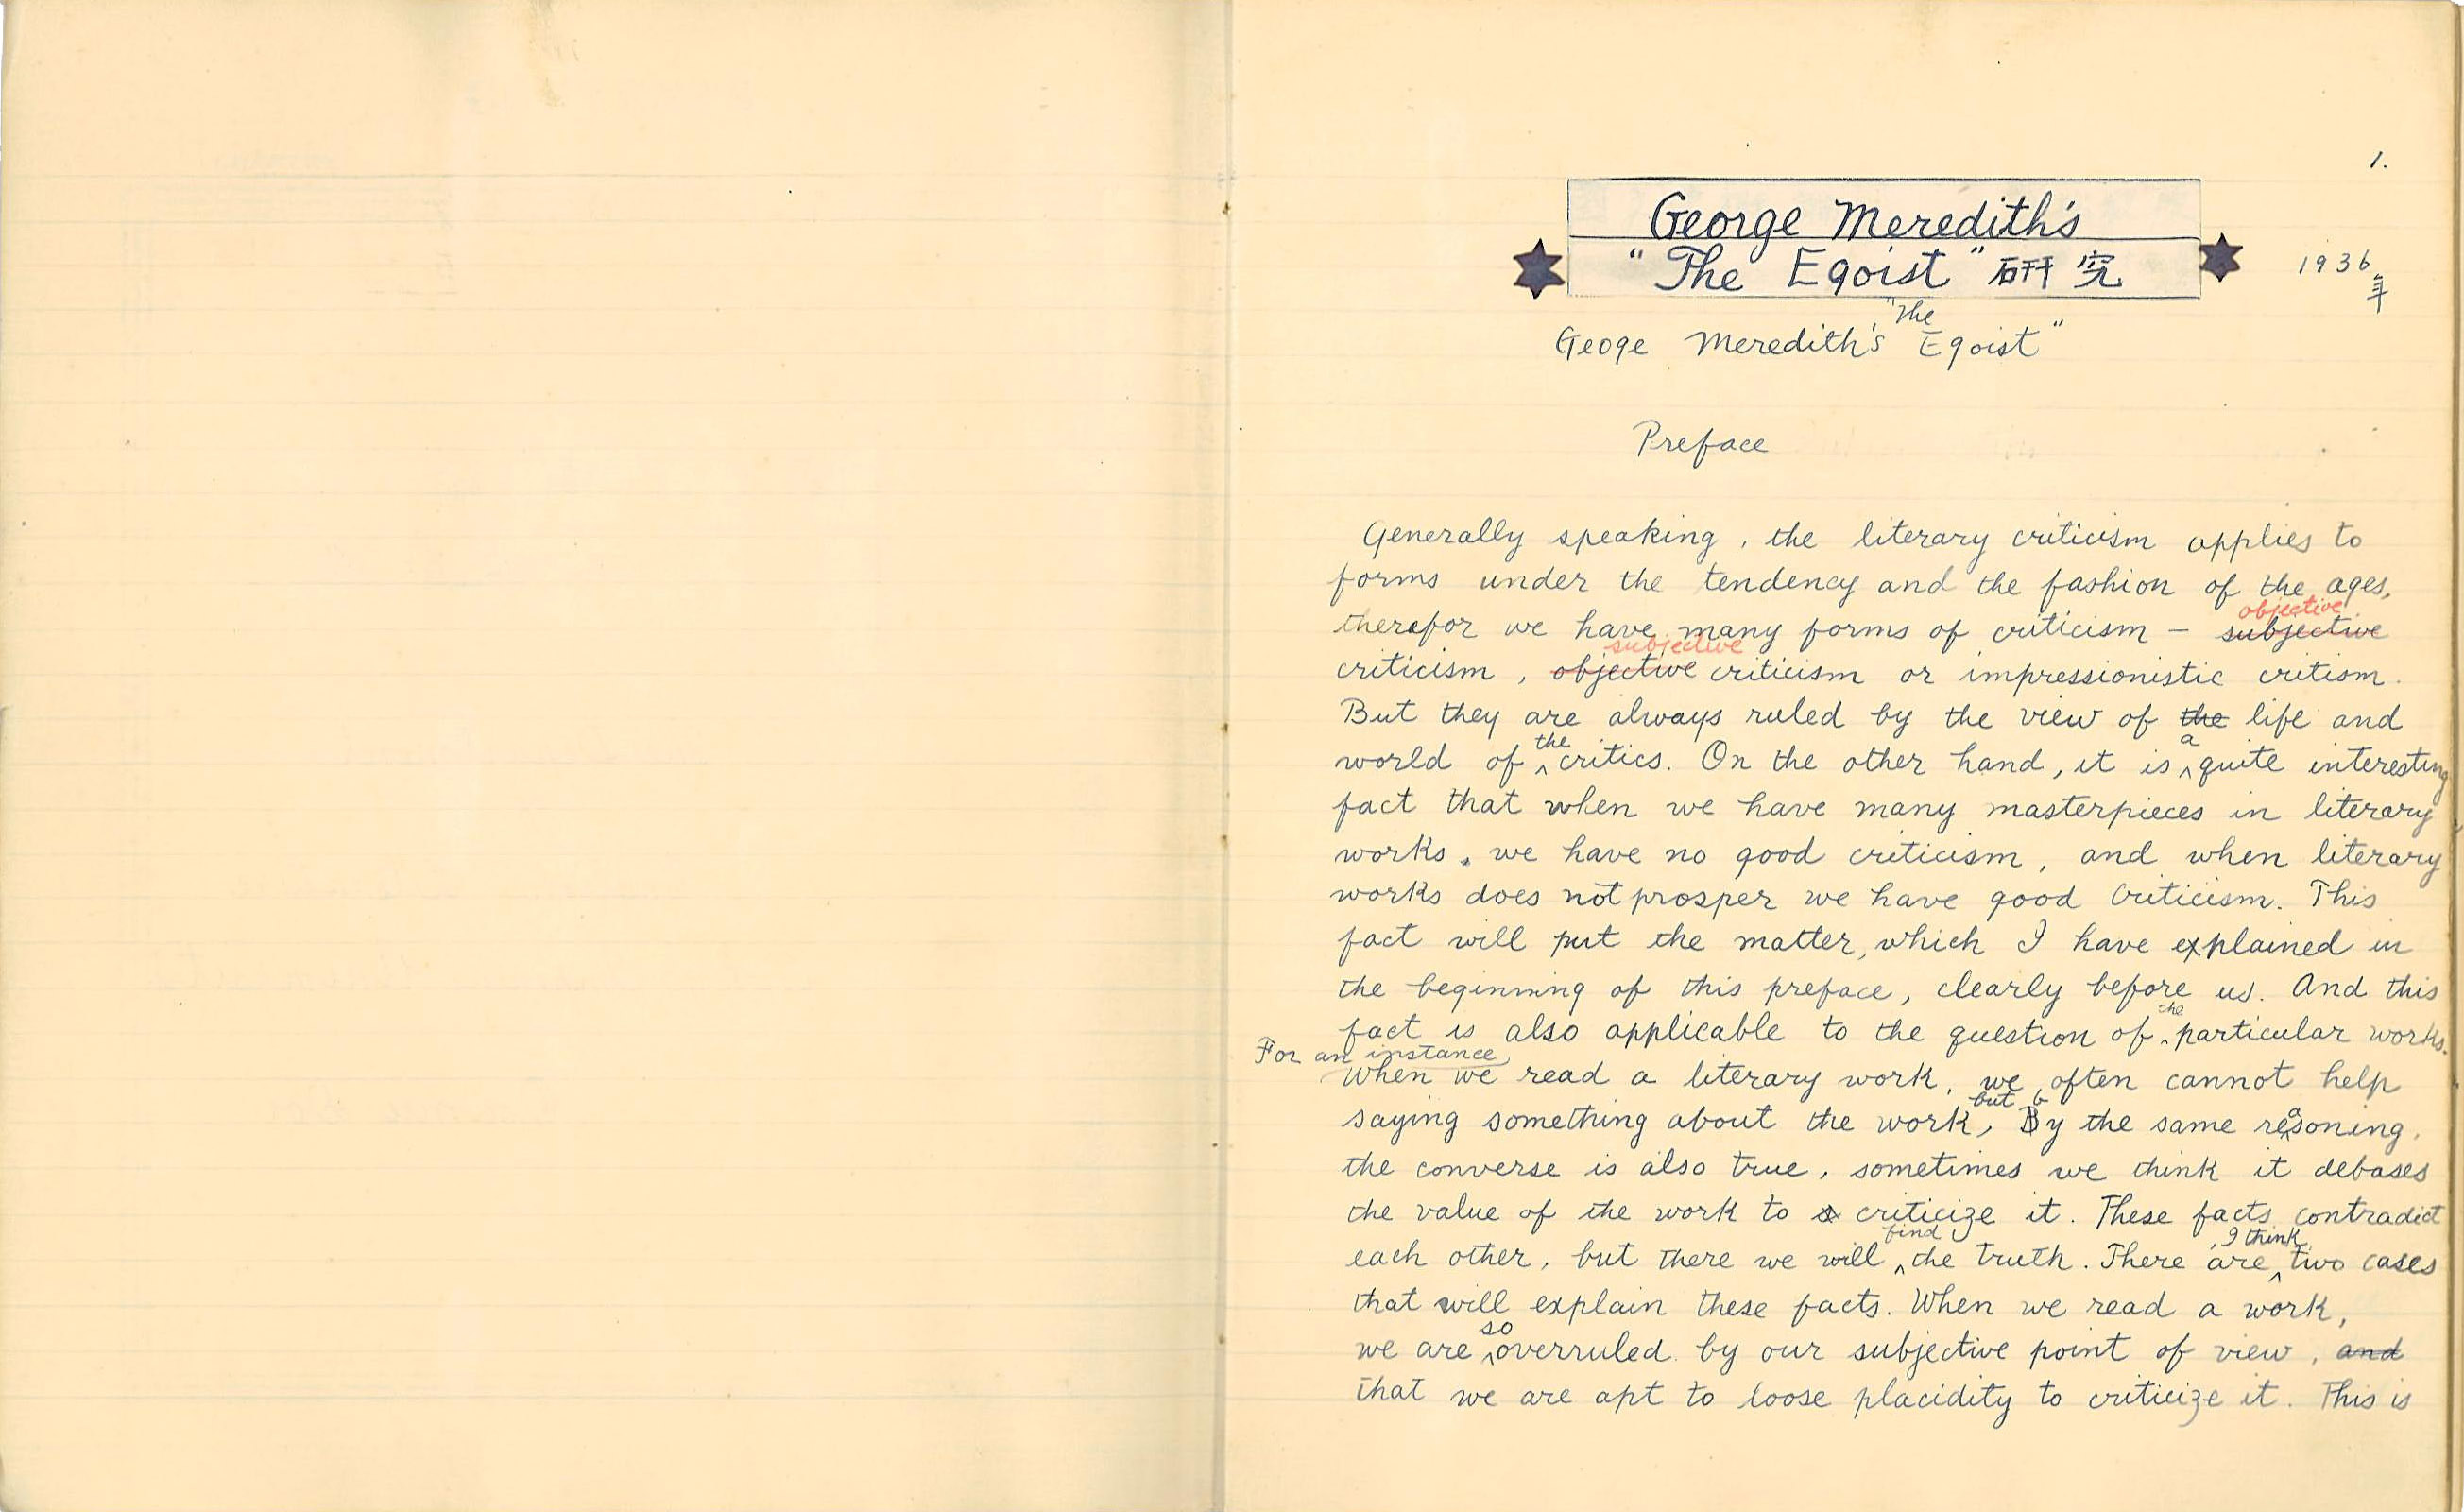 1.
George Meredith's
"The Egoist"研究
1936年
Geoge Meredith's "The Egoist"
Preface
Generally speaking, the literary criticism applies to
forms under the tendency and the fashion of the ages,
therefor we have many forms of criticism – ~~subjective~~ objective
criticism, ~~objective~~ subjective criticism or impressionistic critism.
But they are always ruled by the view of ~~the~~ life and
world of the critics. On the other hand, it is a quite interesting
fact that when we have many masterpieces in literary
works, we have no good criticism, and when literary
works does not prosper we have good criticism. This
fact will put the matter, which I have explained in
the beginning of this preface, clearly before us. And this
fact is also applicable to the question of the particular works.
For an instance, when we read a literary work, we often cannot help
saying something about the work, but by the same reasoning,
the converse is also true, sometimes we think it debases
the value of the work to criticize it. These facts contradict
each other, but there we will find the truth. There are, I think, two cases
that will explain these facts. When we read a work,
we are so overruled by our subjective point of view, ~~and~~
that we are apt to loose placidity to criticize it. This is